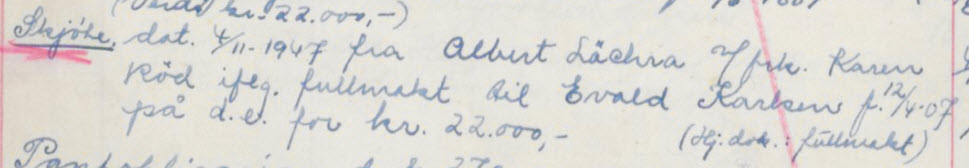 (Verdi kr. 22.000,-)
Skjöte, dat. 4/11-1947 fra Albert Lächra v/frk. Karen
Röd ifly. fullmakt til Evald Karlsen f. 12/4-07
på d.e. for kr. 22.000,-
(Hj.dok.: fullmakt)